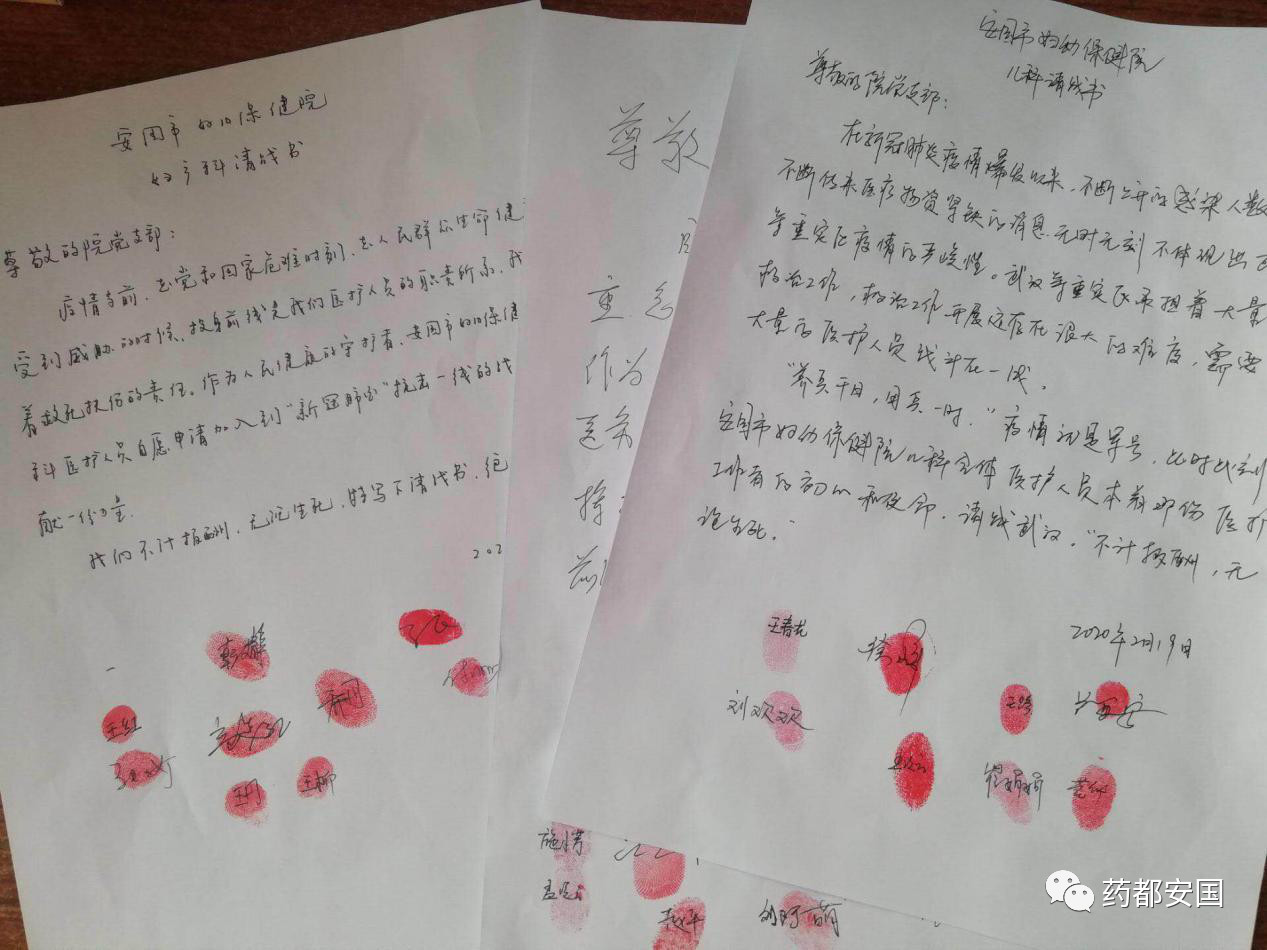 安国市妇幼保健院
妇产科请战书
尊敬的院党支部：
疫情当前，在党和国家危难时刻，在人民群众生命健
受到威胁的时候，投身前线是我们医护人员的职责所系，我
着救死扶伤的责任。作为人民健康的守护者，安国市妇幼保健
科医护人员自愿申请加入到“新冠肺炎”抗击一线的战
献一份力量.
我们不计报酬，无论生死，特写下请战书，绝
202
王红
王丹
王柳
尊敬
重
作为
施情
刘阿萌
安国市妇幼保健院
儿科请战书
尊敬的院党支部：
在新冠肺炎疫情爆发以来，不断上升的感染人数
不断传来医疗物资紧缺的消息无时无刻不体现出
等重灾区疫情的严峻性。武汉等重灾区承担着大量
救治工作，救治工作开展还存在很大的难度，需要
大量的医护人员战斗在一线。
“养兵千日，用兵一时，”疫情就是军号，此时此刻
安国市妇幼保健院儿科全体医护人员本着那份医护
工作者的初心和使命，请战武汉，“不计报酬，无
论生死。”
2020年2月19日
王春龙
刘欢欢
程娟娟
药都安国